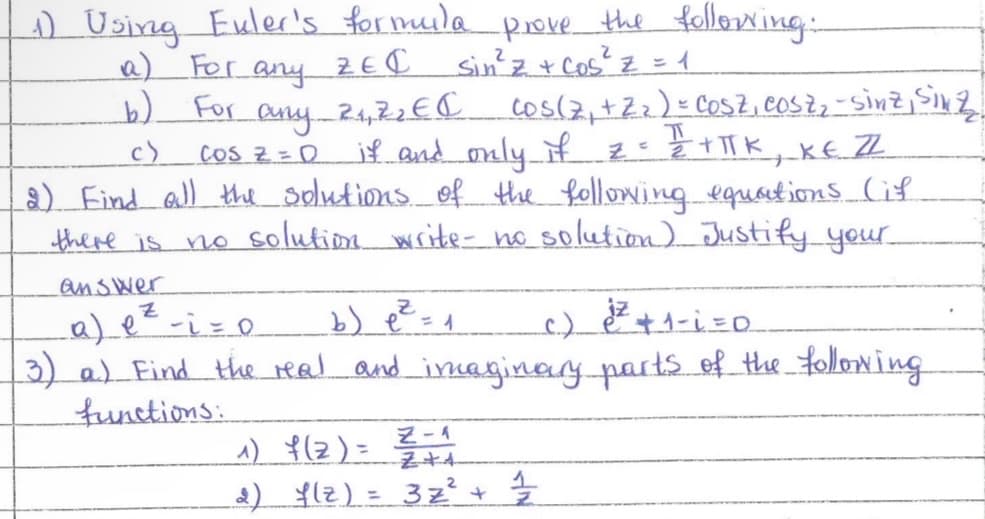 1) Using Euler's formula prove the following:
a) For any z∈ℂ sin²z + cos²z = 1
b) For any z₁,z₂∈ℂ cos(z₁+z₂)=cosz₁cosz₂-sinz₁sinz₂
c) cos z=0 if and only if z = π/2 + πk, k∈ ℤ
2) Find all the solutions of the following equations (if
there is no solution write- no solution) Justify your
answer
a) e^z - i = 0 b) e^z = 1 c) e^{iz} + 1 - i = 0
3) a) Find the real and imaginary parts of the following
functions:
1) f(z) = (z-1)/(z+1)
2) f(z) = 3z² + 1/z